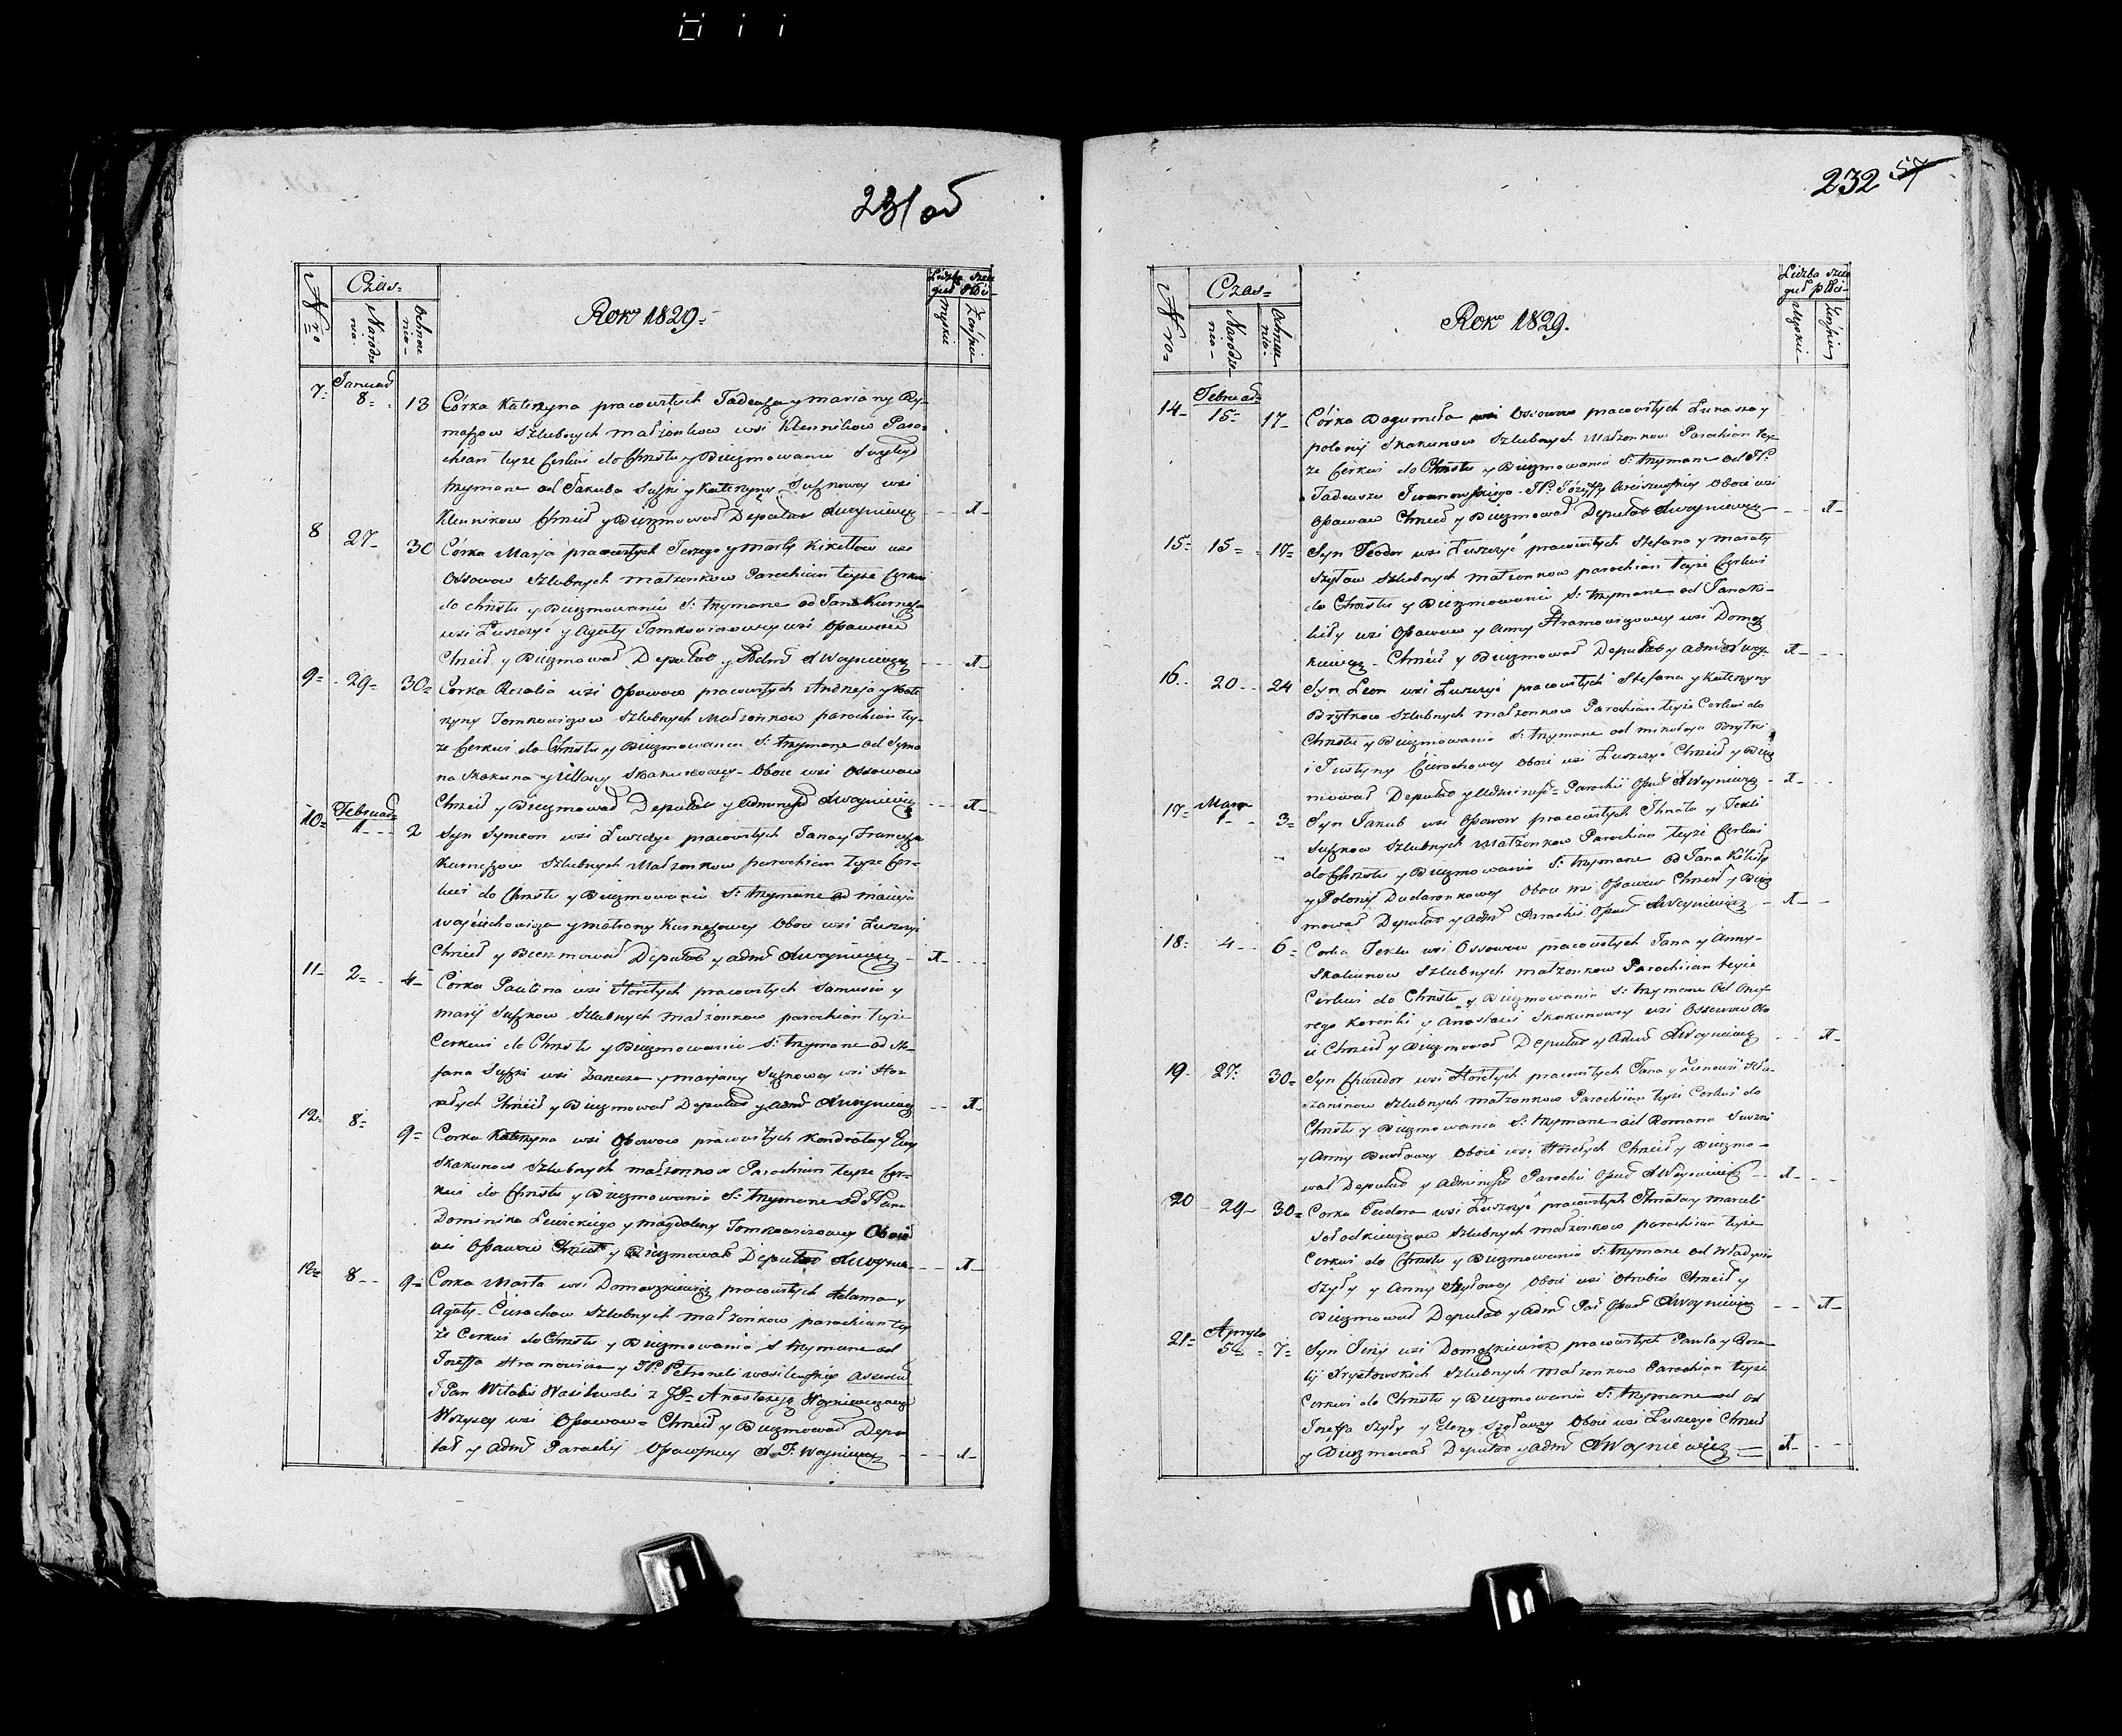 231 об
Nro
Czas
Narodze
nia
Ochrze
nia
Rok 1829
Liczba szcze
guł płci
Męzkie
Żeńskie
7 Januar 8 13 Córka Katerzyna pracowitych Tadeusza y Maria ny
maszow Szlubnych małżonkow wsi Klennikow Paro
chian teyze Cerkwi do Chrztu y Bierzmowania
trzymane od Jakuba Suszki y Katerzyny Suszkowey wsi
Klennikow Chrzcił y Bierzmował Deputat AWoyniewicz 1
8 27 30 Córka Marja pracowitych Jerzego y Marty Kikettow wsi
Ossowow Szlubnych małzonkow Parochian teyze Cerkwi
do Chrztu y Bierzmowania S. trzymane od Jana Kurnesza
wsi Łuszczyć y Agaty Tomkowiczowey wsi Opawow
Chrzcił y Bierzmował Deputat y Adm AWoyniewicz 1
9 29 30 Corka Rozalia wsi Opawow pracowitych Andrzeja y Kate
rzyny Tomkowiczow Szlubnych Małzonkow parochian tey
ze Cerkwi do Chrztu y Bierzmowania S. trzymane od Symo
na Skakuna y Ulliany Skakunowey Oboie wsi Ossowow
Chrzcił y Bierzmował Deputat y Administ AWoyniewicz 1
10 Februar 1 2 Syn Symeon wsi Łuszczyc pracowitych Jana y Franciszki
Kurneszow Szlubnych Małzonkow parochian teyze Cer
kwi do Chrztu y Bierzmowania S. trzymane od Macieja
Woyciechowicza y Matrony Kurneszowey Oboie wsi Łuszczyc
Chrzcił y Bierzmował Deputat y Adm AWoyniewicz 1
11 2 4 Córka Paulina wsi Horełych pracowitych Samusia y
Marij Suszkow Szlubnych Małzonkow parochian teyze
Cerkwi do Chrztu y Bierzmowania S. trzymane od Ste
fana Suszki wsi y Marjany Suszkowey wsi Ho
rełych Chrzcił y Bierzmował Deputat y Adm AWoyniewicz 1
12 8 9 Corka Katerzyna wsi Opawow pracowitych Kondrata y Ewy
Skakunow Szlubnych małzonkow Parochian teyze Cer
kwi do Chrztu y Bierzmowania S. trzymane od JPan
Dominika Lewickiego y Magdaleny Tomkowiczowey Oboie
wsi Opawow Chrzcił y Bierzmował Deputat AWoynie 1
8 9 Corka Marta wsi Domaszkiewicz pracowitych Adama y
Agaty Ciurachow Szlubnych małzonkow parochian tey
że Cerkwi do Chrztu y Bierzmowania S trzymane od
Jozeffa Hramowicza y JP Petroneli Wasilewskiey
JPan Witalis Wasilewski z JP Anastazyą Woyniewiczową
Wszyscy wsi Opawow Chrzcił y Bierzmował Depu
tat y Adm Parochij A. F. Woyniewicz 1
232 57
Nro
Czas
Narodze
nia
Ochrze
nia
Rok 1829.
Liczba szcze
guł płci
Męzkie
Żeńskie
14 Februar 15 17 Córka Bogumiła wsi Osowow pracowitych Łukasza y
polonij Skakunow Szlubnych Małzonkow Parochian tey
ze Cerkwi do Chrztu y Bierzmowania S. trzymane od JP.
Tadeusza Iwanowskiego JP. Józeffy Oboie wsi
Opawow Chrzcił y Bierzmował Deputat AWoyniewicz 1
15 15 17 Syn Teodor wsi Łuszczyć pracowitych Stefana y
Szyłow Szlubnych małzonkow parochian teyze Cerkwi
do Chrztu y Bierzmowania S. trzymane od Jana Ki
kiły wsi Opawow y Anny Hramowiczowey wsi Domasz
kiewicz Chrzcił y Bierzmował Deputat y Adm 1
16 20 24 Syn Leon wsi Łuszczyć pracowitych Stefana y Katerzyny
Brytkow Szlubnych małzonkow Parochian teyze Cerkwi do
Chrztu y Bierzmowania S. trzymane od Mikołaja Brytki
i Justyny Ciurachowey Oboie wsi Łuszczyć Chrzcił y Bierz
mował Deputat y Administ Parochij AWoyniewicz 1
17 Mar 1 3 Syn Jakub wsi Opawow pracowitych Ihnata y Tekli
Suszkow Szlubnych Małzonkow Parochian teyze Cerkwi
do Chrztu y Bierzmowania S. trzymane od Jana Kikiły
y Polonij Dudaronkowey Oboie wsi Opawow Chrzcił y Bierz
mował Deputat y Adm Parochij AWoyniewicz 1
18 4 6 Corka Tekla wsi Ossowow pracowitych Jana y Anny
Skakunow Szlubnych małzonkow Parochian teyze
Cerkwi do Chrztu y Bierzmowania S. trzymane od Onuf
rego Korenki y Anastazij Skakunowey wsi Ossowow Obo
ie Chrzcił y Bierzmował Deputat y Adm AWoyniewicz 1
19 27 30 Syn Chwedor wsi Horełych pracowitych Jana y Zenowii
Szlubnych małzonkow Parochian teyze Cerkwi do
Chrztu y Bierzmowania S. trzymane od Romana Suszki
y Anny Oboie wsi Horełych Chrzcił y Bierzmo
wał Deputat y Administ Parochii AWoyniewicz 1
20 29 30 Corka Teodora wsi Łuszczyć pracowitych Ihnata y Marceli
Sołodkiewiczow Szlubnych małzonkow parochian teyze
Cerkwi do Chrztu y Bierzmowania S. trzymane od
Szyły y Anny Szyłowey Oboie wsi Chrzcił y
Bierzmował Deputat y Adm Par AWoyniewicz 1
21 Apryla 5 7 Syn Jerzy wsi Domaszkiewicz pracowitych Pawła y Roza
lij Szlubnych małzonkow Parochian teyze
Cerkwi do Chrztu y Bierzmowania S. trzymane od od
Jozeffa Szyły y Eleny Szyłowey Oboie wsi Łuszczyc Chrzcił
y Bierzmował Deputat y Adm AWoyniewicz 1